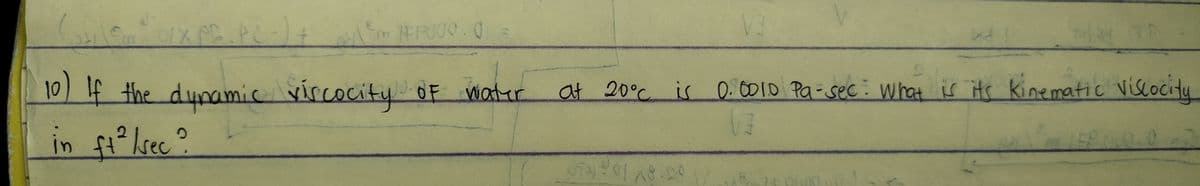 10) If the dynamic viscocity OF water at 20°c is 0.0010 Pa-sec: What is its Kinematic viscocity
in ft²/sec?